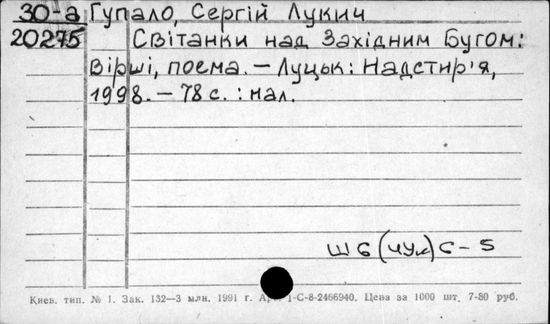 30-а Гупало, Сергій Лукич
20275 Світанки над Західним Бугом:
Вірші, поема. – Луцьк: Надстир'я,
1998. – 78 с. : мал.
Ш6(4Ук)6-5
Киев. тип. № 1. Зак. 132—3 млн. 1991 г. 1-С-8-2466940. Цена за 1000 шт. 7-80 руб.